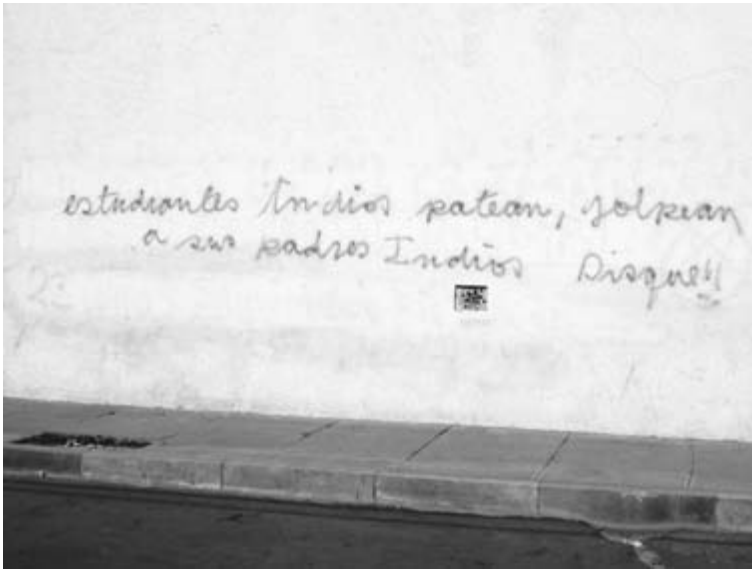 estudiantes Indios patean, golpean
a sus padres Indios Disque!!